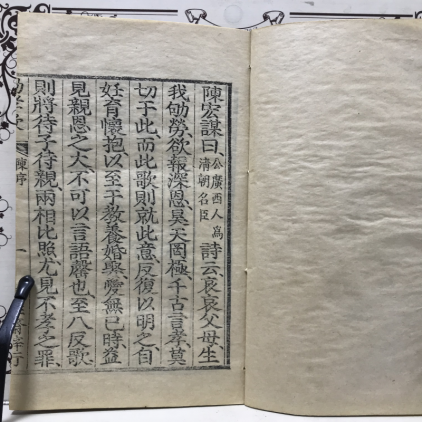 陳宏謀曰公廣西人爲清朝名臣詩云哀哀父母生
我劬勞欲報深恩昊天罔極千古言孝莫
切于此而此歌則就此意反復以明之自
妊育懷抱以至于教養婚娶愛無已時益
見親恩之大不可以言語罄也至八反歌
則將待子待親兩相比照尤見不孝之罪
陳序
一